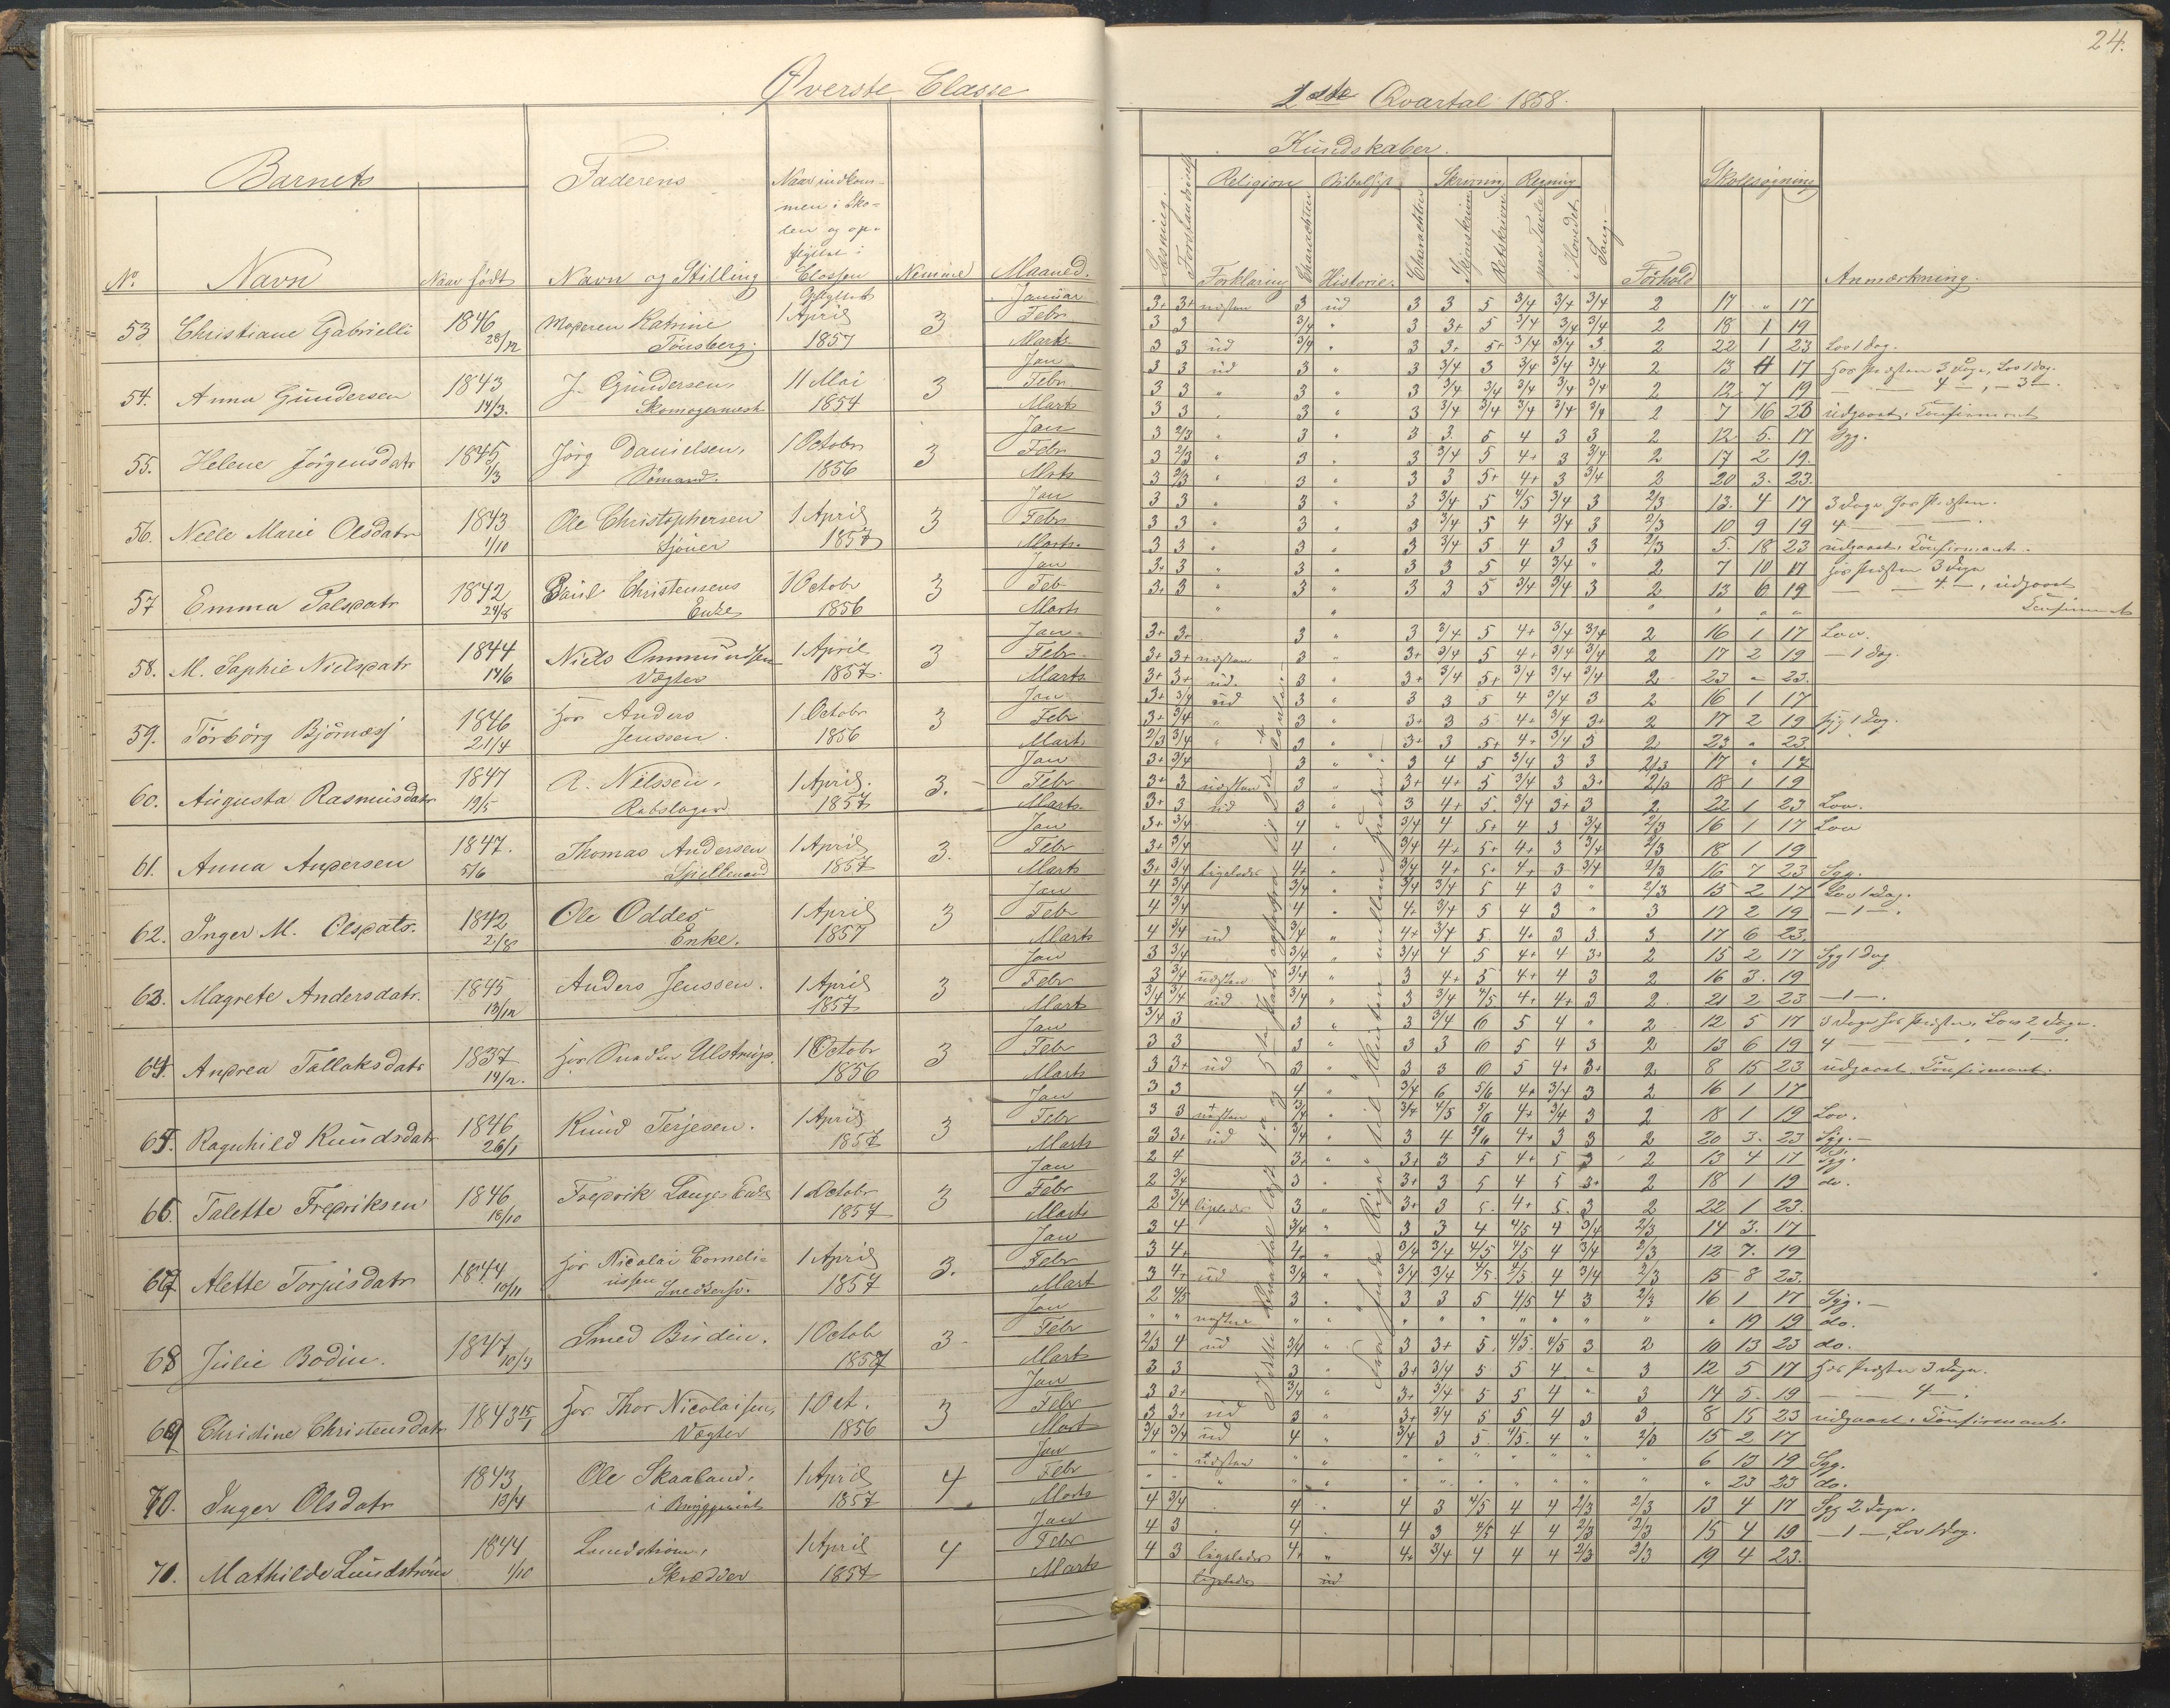 Øverste Classe
Barnets
Faderens
Naar indkom-
men i Sko-
len og op-
flyttet i
Classen
No
Navn
Naar født
Navn og Stilling
Nemme
Maaned.
53 Christiane Gabrielli 1846 28/12 Moderen Katrine Tönsberg. Opflyttet 1 April 1857 3 Januar Febr Marts
54. Anna Gundersen 1843 14/3. J. Gundersen, Skomagermest 11 Mai 1854 3 Jan Febr Marts
55. Helene Jörgensdatr 1845 Jörg Danielsen, Sömand. 1 Octobr 1856 3 Jan Febr Mrts
56. Neele Marie Olsdatr 1843 1/10 Ole Christophersen Sjöuer 1 April 1857 3 Jan Febr Marts.
57 Emma Palsdatr 1842 24/8 Paul Christensens Enke 1 Octobr 1856 3 Jan Feb Marts
58. M. Sophie Nielsdatr 1844 14/6 Niels Ommundsen Vægter 1 April 1857. 3 Jan Febr Marts
59. Törborg Björnæs 1846 21/4 hos Anders Jenssen. 1 Octobr 1856 3 Jan Febr Mart
60. Augusta Rasmusdatr 1847 19/5 R. Nilssen, Rebslager 1 April. 1857 3. Jan Febr Marts
61. Anna Andersen 1847. 5/6 Thomas Andersen Spillemand 1 April 1857 3. Jan Febr Marts
62. Inger M. Olsdatr. 1842 2/8 Ole Oddes Enke. 1 April 1857 3 Jan Febr Marts
63. Magrete Andersdatr. 1845 13/12 Anders Jenssen. 1 April 1857 3 Jan Febr Marts
64. Andrea Tallaksdatr 1837 14/2. hos Ulstrup. 1 Octobr 1856 3 Jan Febr Marts
65. Ragnhild Knudsdatr 1846 26/1 Knud Terjesen. 1 April 1857 3 Jan Febr Marts
66. Talette Fredriksen 1846 18/10 Fredrik Langes Enke 1 Octobr 1857 3 Jan Febr Marts
67 Alette Torjusdatr 1844 10/11 hos Nicolai Corneliussen Snedkersv. 1 April 1857 3. Jan Febr Mart
68 Julie Bodin. 1847 Smed Budin. 1 Octob 1857 3 Jan Febr Marts
69 Christine Christensdatr 1843 15/1 hos Thor Nicolaisen, Vægter 1 Oct. 1856 3 Jan Febr Mart
70. Inger Olsdatr 1843 13/4 Ole Skaaland, i 1 April 1857 4 Jan Febr Marts
70. Mathilde Lundström 1844 1/10 Lundström, Skrædder 1 April 1857 4 Jan Febr Marts
24.
1ste Qvartal 1858.
Kundskaber.
Læsning.
Forstandsövelse
Religion
Forklaring
Charachteer
Bibelhist
Historie.
Charachteer
Skrivning
Skjönskrivn
Retskrivn
Regning
paa Tavle
i Hovedet.
Sang.
Forhold
Skolesögning
Anmærkning.
3+ 3+ næsten 3 ud 3 3 5 3/4 3/4 3/4 2 17 " 17
3 3 3/4 " 3 3+ 5 3/4 3/4 3/4 2 18 1 19
3 3 ud 3/4 " 3 3+ 5+ 3/4 3/4 3 2 22 1 23 Lov 1 dag.
3 3 ud 3 " 3 3/4 3 3/4 3/4 3/4 2 13 4 17 hos Præsten 3 Dage, Lov 1 dag.
3 3 " 3 " 3 3/4 3/4 3/4 3/4 3/4 2 12 7 19 — 4 —, — 3 —.
3 3 3 " 3 3/4 3/4 3/4 3/4 3/4 2 7 16 23 udgaaet, Confirmant
3 2/3 " 3 " 3 3 5 4 3 3 2 12 5 17 Syg.
3 2/3 " 3 " 3 3/4 5 4+ 3 3/4 2 17 2 19.
3 2/3 " 3 " 3 3 5+ 4+ 3 3/4 2 20 3 23.
3 3 " 3 " 3 3/4 5 4/5 3/4 3 2/3 13. 4 17 3 Dage hos Præsten.
3 3 " 3 " 3 3/4 5 4 3/4 3 2/3 10 9 19 4 —
3 3 " 3 " 3 3/4 5 4 3 3 2/3 5 18 23 udgaaet, Confirmant.
3+ 3 " 3 " 3 3 5 4 3/4 " 2 7 10 17 hos Præsten 3 Dage
3+ 3 " 3 " 3 3 5 3/4 3/4 3 2 13 6 19 — 4 —, udgaaet
3+ 3+ 3 " 3 3/4 5 4+ 3/4 3/4 2 16 1 17 Lov.
3+ 3+ næsten 3 " 3+ 3/4 5 4+ 3/4 3/4 2 17 2 19 — 1 dag.
3+ 3+ ud. 3 " 3+ 3/4 5+ 3/4 3/4 3/4 2 23 " 23.
3+ 3/4 ud 3 " 3 3 5 4 3/4 3 2 16 1 17
3+ 3/4 " 3 " 3+ 3 5 4+ 3/4 3+ 2 17 2 19 Syg 1 Dag.
2/3 3/4 " 3 " 3+ 3 5+ 4+ 3/4 3 2 23 " 23.
3+ 3/4 3 " 3 4 5 3/4 3 3 2/3 17 " 17
3+ 3 næsten 3 " 3+ 4+ 5 3/4 3 3+ 2/3 18 1 19
3+ 3 ud 3 " 3 4+ 5 3/4 3+ 3 2 22 1 23 Lov.
3+ 3/4 4 " 3/4 4 5+ 4 3 3/4 2/3 16 1 17 Lov
3+ 3/4 4 " 3/4 4+ 5+ 4+ 3 3/4 2/3 18 1 19
3+ 3/4 ligeledes 4+ " 3/4 4+ 5+ 4+ 3 3/4 2/3 16 7 23 Syg.
4 3/4 3/4 " 3/4 3/4 5 4 3 " 2/3 15 2 17 Lov 1 dag.
4 3/4 4 " 4+ 3/4 5 4 3 " 3 17 2 19 — 1 —.
4 3/4 ud 3/4 " 4+ 3/4 5 4+ 3 3 3 17 6 23.
3 3/4 3/4 " 3/4 4 5 4+ 4 3+ 2 15 2 17 Syg 1 Dag
3 3/4 næsten 3/4 " 3 4+ 5 4+ 4 3 2 16 3 19
3/4 3/4 ud 3/4 " 3 3/4 4/5 4+ 4+ 3 2 21 2 23 — 1 —.
3/4 3 3 " 3 3/4 6 5 4 " 2 12 5 17 3 Dage hos Præsten, Lov 2 Dage.
3 3 3 " 3 3 6 5 4 3 2 13 6 19 4 — — 1 —.
3 3+ ud 3 " 3 3 6 5 4+ 3+ 2 8 15 23 udgaaet. Confirmant.
3 3 4 " 3/4 6 5/6 4+ 3/4 3 2 16 1 17
3 3 næsten 3/4 " 3/4 4/5 5/6 4+ 3/4 3 2 18 1 19 Lov.
3 3+ ud 3/4 " 3 4 5/6 4+ 3 3 2 20 3 23 Syg.
2 4 3+ " 3+ 3 5 4+ 5 3 2 13 4 17 Syg.
2 3/4 3 " 3+ 3 5 4 5 3+ 2 18 1 19 do.
2 3/4 ligeledes 3 " 3+ 3 5 4+ 5 3 2 22 1 23.
3 4 3/4 " 3 3 4 4/5 4 3/4 2/3 14 3 17
3 4+ 4+ " 3/4 3/4 4/5 4/5 4 3/4 2/3 12 7 19
3 4+ ud 3/4 " 3/4 3/4 4/5 4/5 4 3/4 2/3 15 8 23.
2 4/5 3 " 3 3 5 4/5 4 3 2/3 16 1 17 Syg. —
" " næsten " " " " " " " " " " 19 19 do.
2/3 4 ud 3/4 " 3 3+ 5 4/5 4/5 3 2 10 13 23 do.
3 3 3 " 3+ 3/4 5 5 4 " 3 12 5 17 hos Præsten 3 Dage.
3 3+ 3/4 " 3+ 3/4 5 5 4 " 3 14 5 19 — 4 —.
3 3+ ud 3 " 3+ 3/4 5 5 4 3 3 8 15 23 udgaaet. Confirmant.
3/4 3/4 ud 4 " 3/4 3 5 4/5 4 " 2/3 15 2 17
" " næsten " " " " " " " " " 6 13 19 Syg.
" " " " " " " " " " " " " 23 23 do.
4 3/4 4 " 4 3 4/5 4 4 2/3 2/3 13 4 17 Syg 2 Dage.
4 3 4 4 3 4/5 4 4 2/3 2/3 15 4 19 — 1 — Lov 1 Dag.
4 3 ligeledes 4+ " 4+ 3/4 4 4 4 2/3 2/3 19 4 23.
ligeledes ud